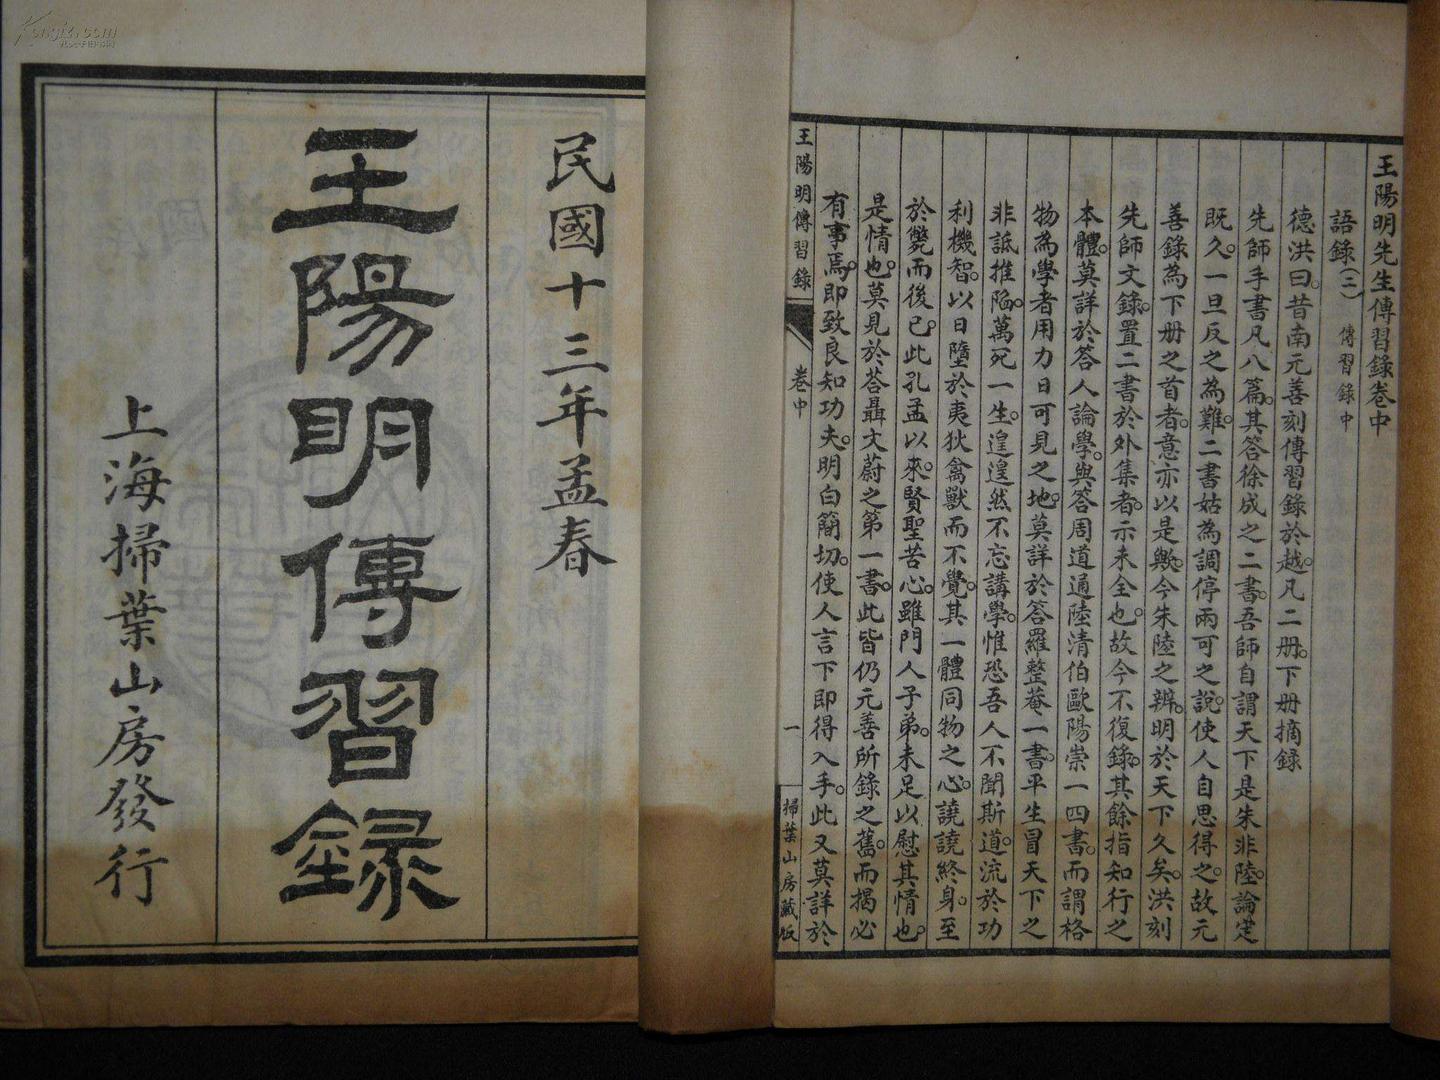 民國十三年孟春
王陽明傳習録
上海掃葉山房發行
王陽明先生傳習錄卷中
語錄(二) 傳習錄中
德洪曰。昔南元善刻傳習錄於越。凡二册。下册摘錄
先師手書凡八篇。其答徐成之二書。吾師自謂天下是朱非陸。論定
既久。一旦反之為難。二書姑為調停兩可之說。使人自思得之。故元
善錄為下册之首者。意亦以是歟。今朱陸之辨。明於天下久矣。洪刻
先師文錄。置二書於外集者。示未全也。故今不復錄。其餘指知行之
本體。莫詳於答人論學。與答周道通陸清伯歐陽崇一四書。而謂格
物為學者用力日可見之地。莫詳於答羅整菴一書。平生冒天下之
非詆推陷。萬死一生。遑遑然不忘講學。惟恐吾人不聞斯道。流於功
利機智。以日墮於夷狄禽獸而不覺。其一體同物之心。譊譊終身。至
於斃而後已。此孔孟以來。賢聖苦心。雖門人子弟。未足以慰其情也。
是情也。莫見於荅聶文蔚之第一書。此皆仍元善所錄之舊。而揭必
有事焉。即致良知功夫。明白簡切。使人言下即得入手。此又莫詳於
王陽明傳習錄
卷中
一
掃葉山房藏板